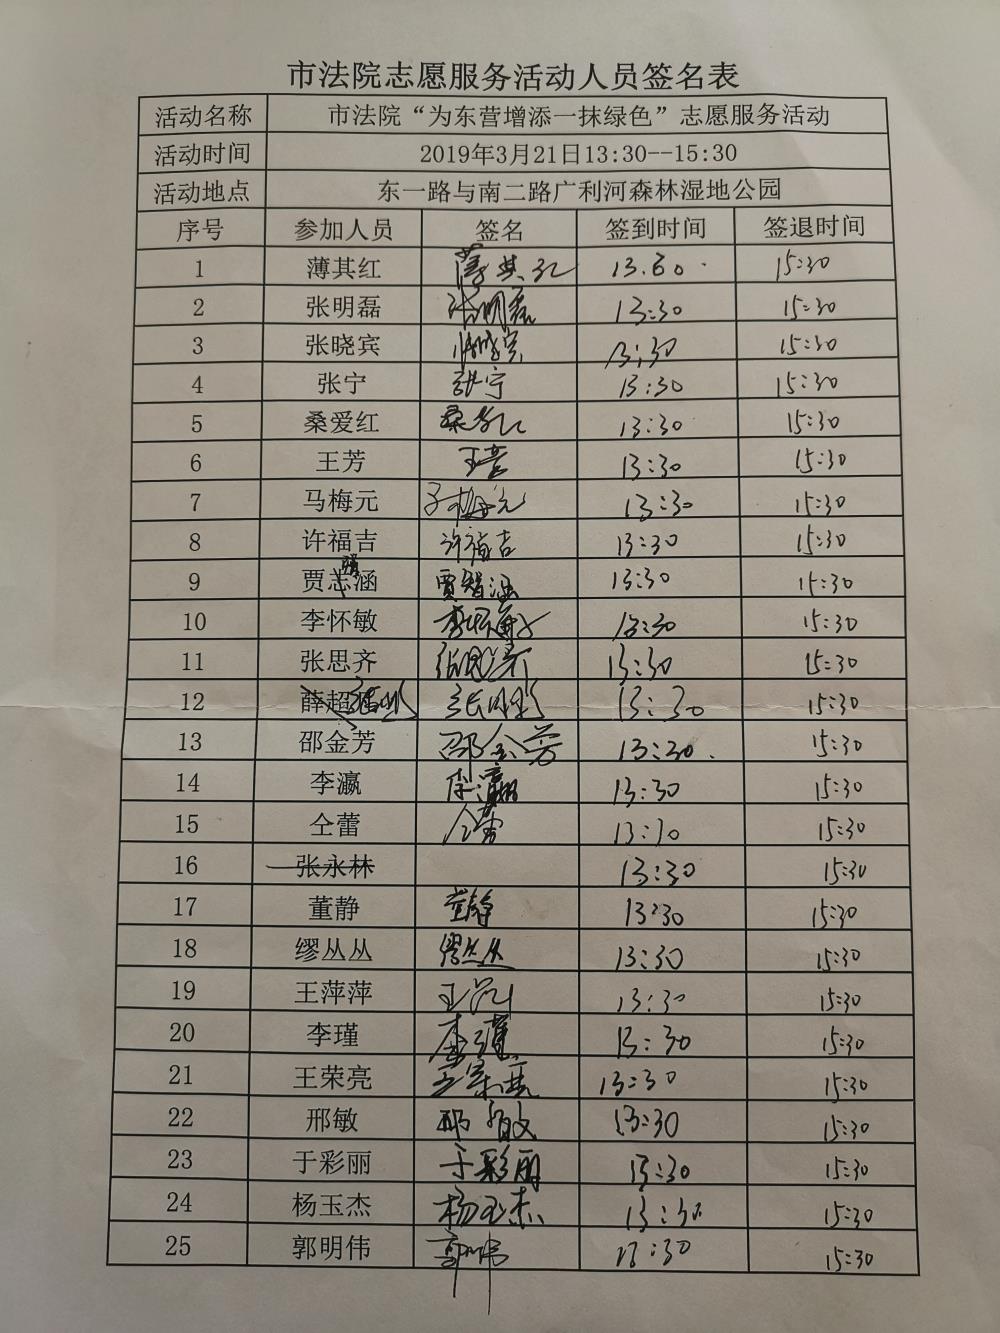 市法院志愿服务活动人员签名表
活动名称 市法院“为东营增添一抹绿色”志愿服务活动
活动时间 2019年3月21日13:30--15:30
活动地点 东一路与南二路广利河森林湿地公园
序号 参加人员 签名 签到时间 签退时间
1 薄其红 薄其红 13.60 15:30
2 张明磊 张明磊 13:30 15:30
3 张晓宾 张晓宾 13:30 15:30
4 张宁 张宁 13:30 15:30
5 桑爱红 桑爱红 13:30 15:30
6 王芳 王芳 13:30 15:30
7 马梅元 马梅元 13:30 15:30
8 许福吉 许福吉 13:30 15:30
9 贾志涵 贾智涵 13:30 15:30
10 李怀敏 李怀敏 13:30 15:30
11 张思齐 张思齐 13:30 15:30
12 薛超 13:30 15:30
13 邵金芳 邵金芳 13:30 15:30
14 李瀛 李瀛 13:30 15:30
15 仝蕾 仝蕾 13:30 15:30
16 张永林 13:30 15:30
17 董静 董静 13:30 15:30
18 缪丛丛 缪丛丛 13:30 15:30
19 王萍萍 王萍萍 13:30 15:30
20 李瑾 李瑾 13:30 15:30
21 王荣亮 王荣亮 13:30 15:30
22 邢敏 邢敏 13:30 15:30
23 于彩丽 于彩丽 13:30 15:30
24 杨玉杰 杨玉杰 13:30 15:30
25 郭明伟 郭明伟 13:30 15:30